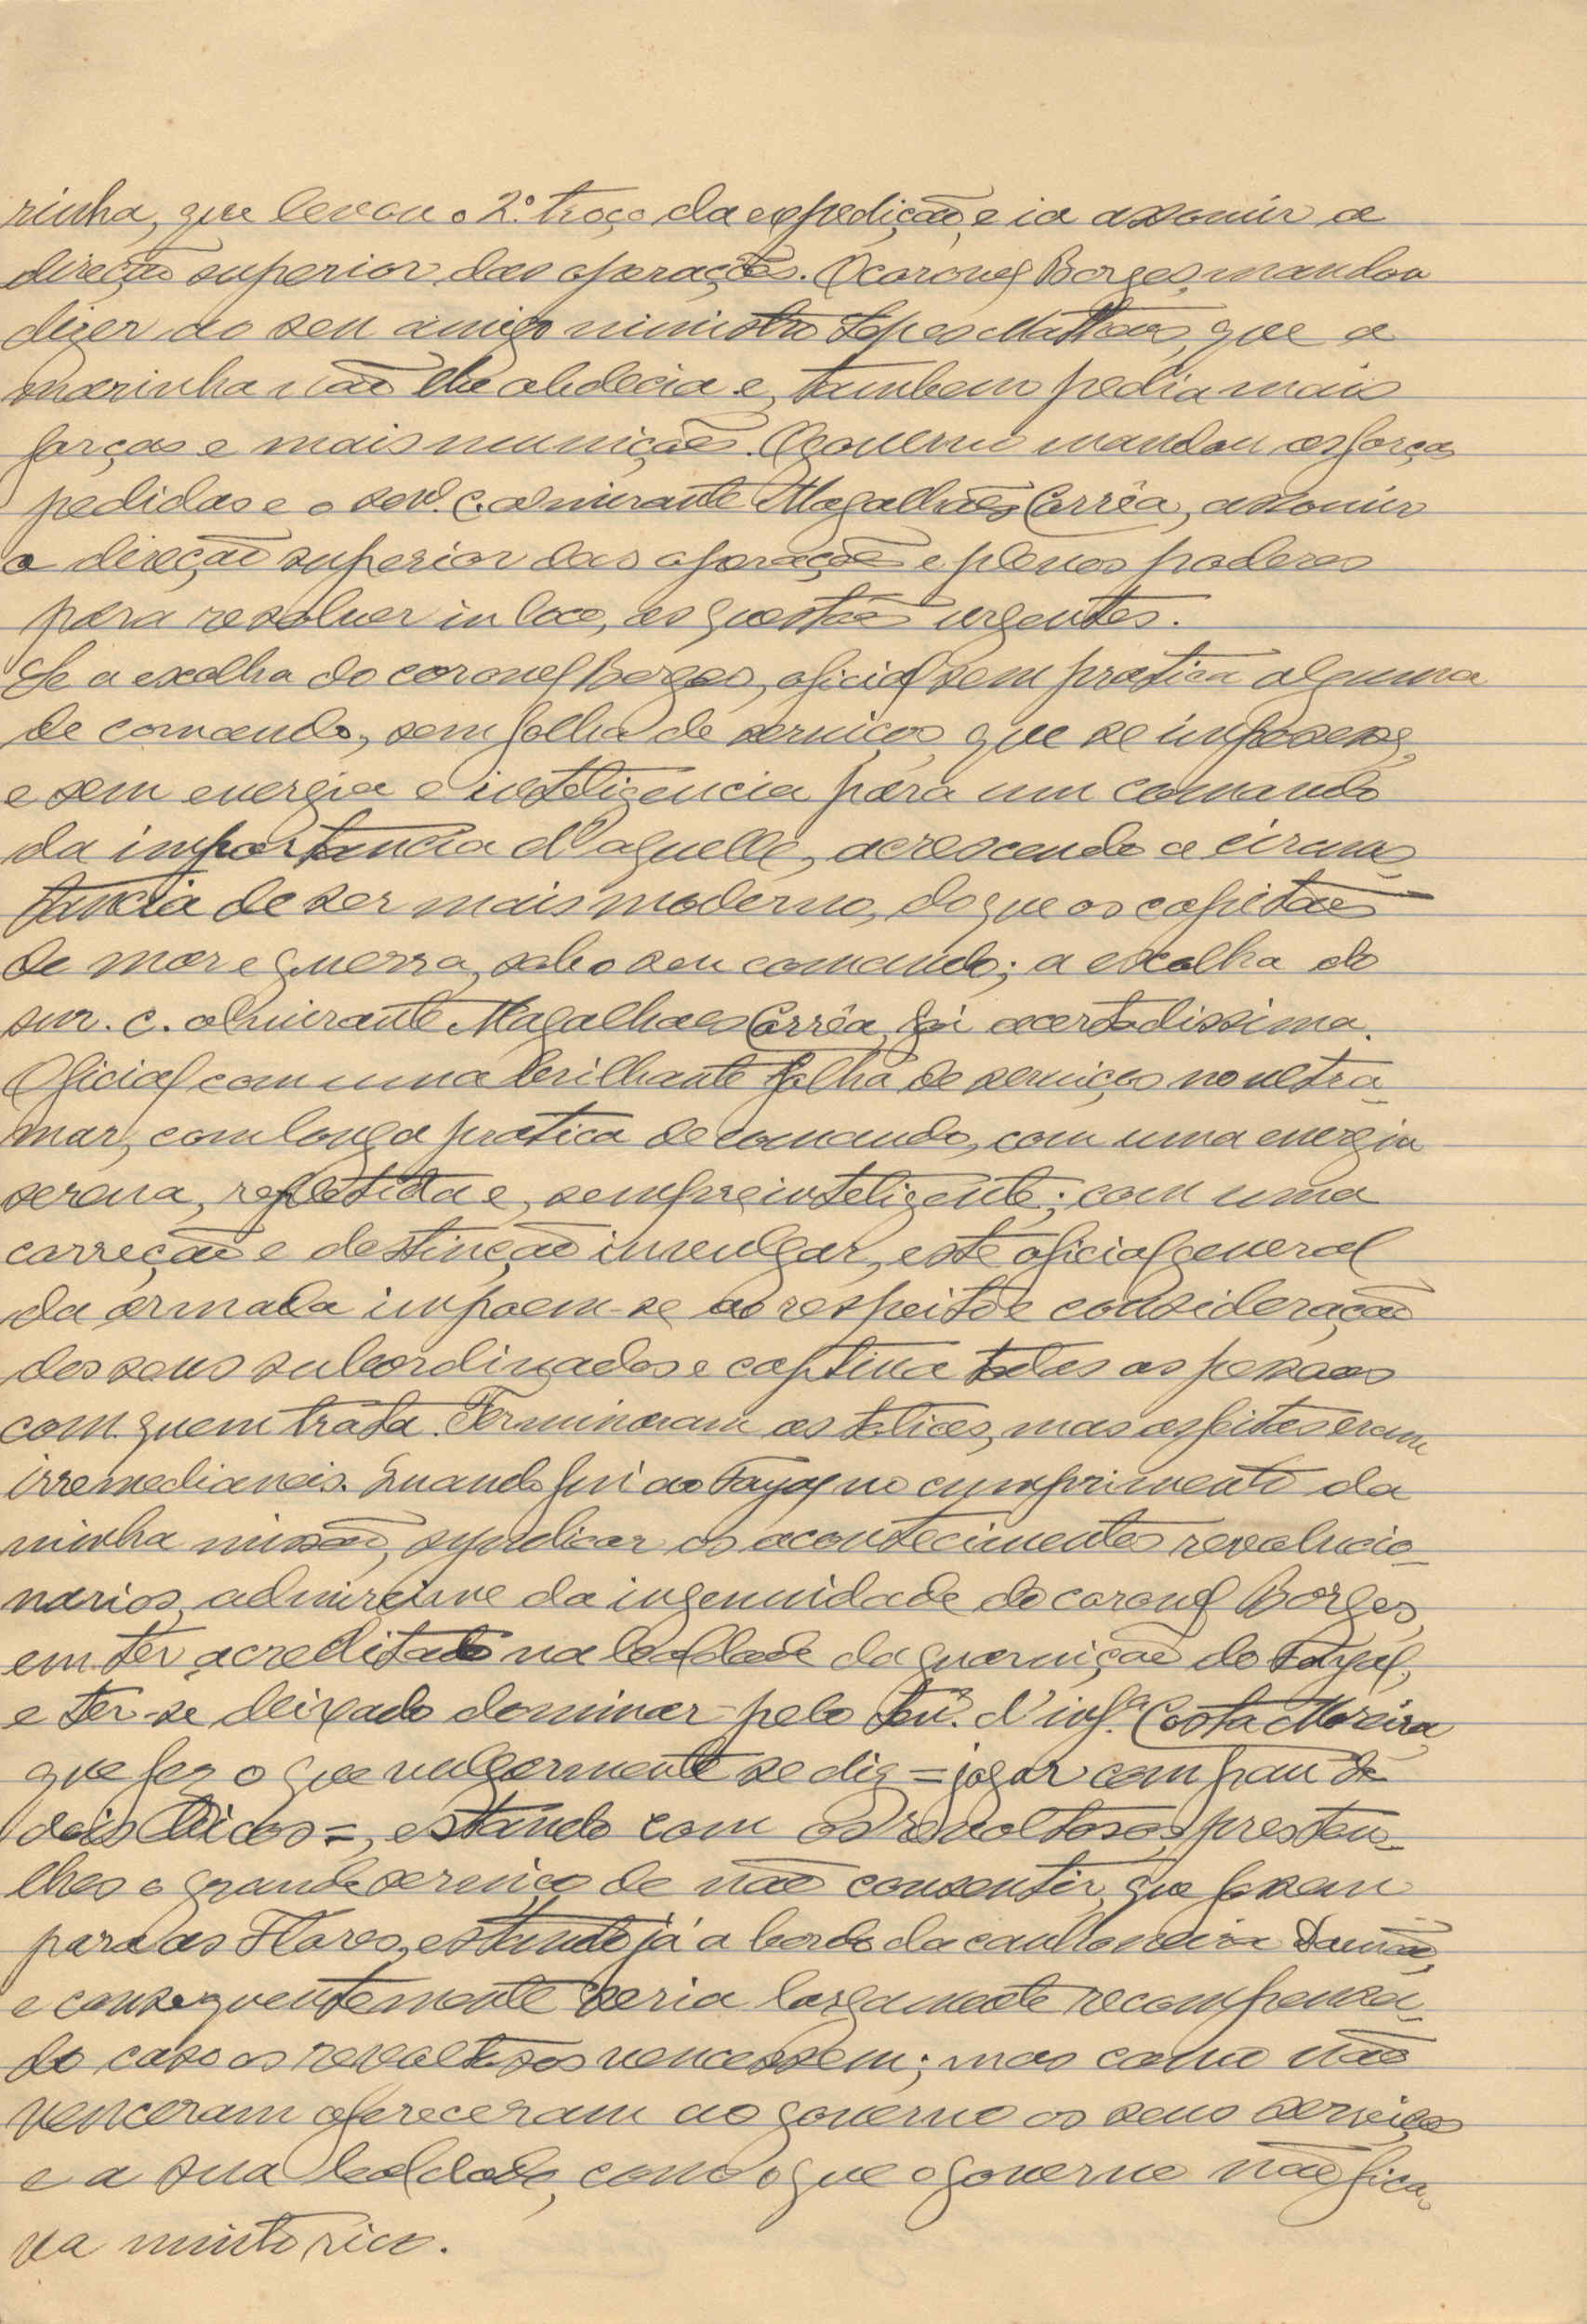 rinha, que levou o 2.º troço da expedição, e ia assomir a
direção superior das operações. O coronel Borges, mandou
dizer ao seu amigo ministro Lopes Matteus, que a
marinha não lhe obdecia e, tambem pedia mais
forças e mais munições. O governo mandou as forças
pedidas e o snr. c. almirante Magalhães Corrêa, assomir
a direção superior das operações e plenos poderes
para resolver in loco, as questões urgentes.
Se a escolha do coronel Borges, oficial sem pratica alguma
de comando, sem folha de serviços que se imposesse,
e sem energia e inteligencia para um comando
da importancia d'aquelle, acrescendo a circuns-
tancia de ser mais moderno, do que os capitães
de mar e guerra, sob o seu comando; a escolha do
snr. c. almirante Magalhães Corrêa, foi acertadissima.
Oficial com uma brilhante folha de serviços no ultra-
mar, com longa pratica de comando, com uma energia
serena, refletida e, sempre inteligente; com uma
correção e destinção invulgar, este oficial general
da armada impoem-se ao respeito e consideração
dos seus subordinados e captiva todas as pessoas
com quem trata. Terminaram as tolices, mas as feitas eram
irremediaveis. Quando fui ao Fayal no cumprimento da
minha missão, syndicar os acontecimentos revolucio-
narios, admirei-me da ingenuidade do coronel Borges,
em ter acreditado na lealdade da guarnição do Fayal,
e ter-se deixado dominar pelo ten. d'inf.ª Costa Moreira
que fez o que vulgarmente se diz = jogar com pau de
dois bicos =, estando com os revoltosos, prestou-
lhes o grande serviço de não consentir, que fossem
para as Flores, estando já a bordo da canhoneira Damão,
e consequentemente seria largamente recompensa-
do caso os revoltosos vencessem; mas como não
venceram ofereceram ao governo os seus serviços
e a sua lealdade, com o que o governo não fica-
va muito rico.